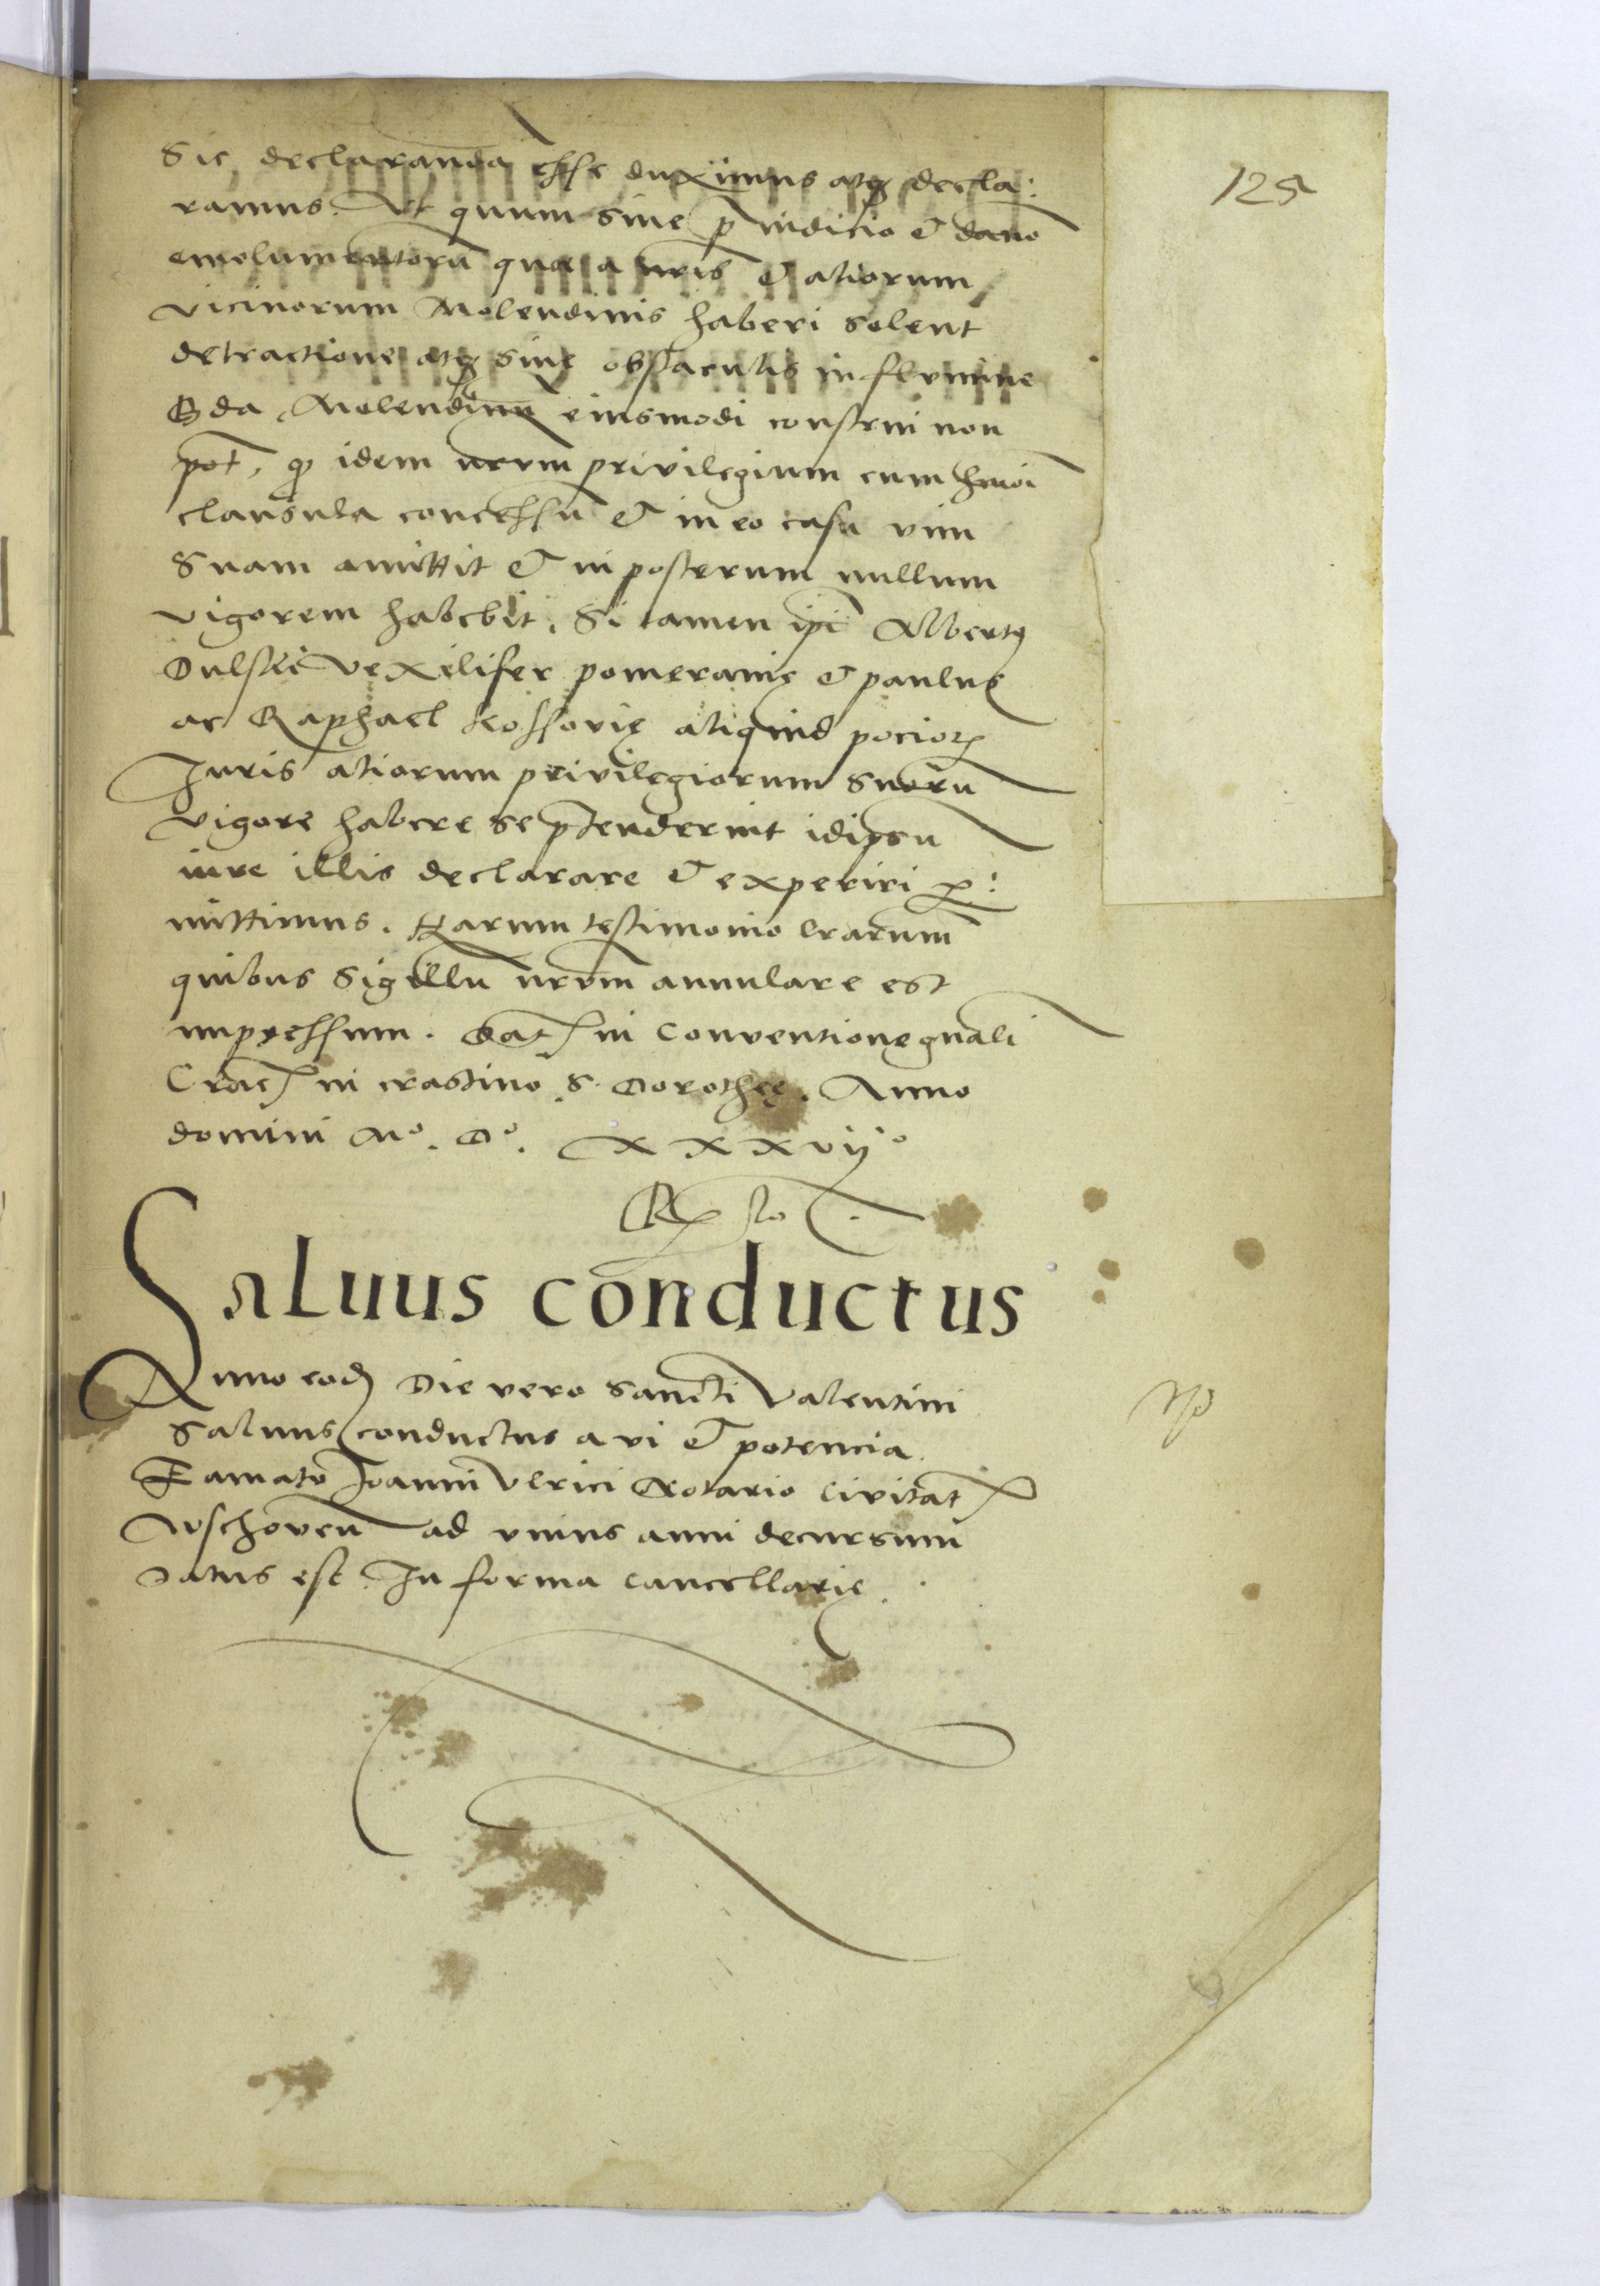 125
Sic declaranda esse duximus atq; decla:
ramus. Ut quum sine p̄iudicio et danō
emolumentorū quæ a nr̄is et aliorum
vicinorum Molendinis haberi solent
detractione atq; sine obstaculis in flumine
Bda Molendinū eiusmodi construi non
pot̄, q̄ idem nr̄um privilegium cum hm̄oi
clausula concessū et in eo casu vim
suam amittit et in posterum nullum
vigorem habebit. Si tamen ip̄i Albertꝰ
Dulski vexilifer pomeranię et paulus
ac Raphael Kossovię aliquid pocioris
Juris aliorum privilegiorum suorū
vigore habere se p̄tenderint idipsū
iure illis declarare et experiri per:
mittimus. Harum testimonio lr̄arum
quibus Sigillū nr̄um annulare est
impressum. Dat in Conventione gn̄ali
Crac in crastino S. Dorotheę. Anno
domini Mº. Dº. XXXVIJº
Saluus conductus
Anno eod Die vero Sancti Valentini
Saluus conductus a vi et potencia
Famato Joanni Ulrici Notario Civitat
Wschoven ad unius anni decursum
datus est In forma Cancellarię.